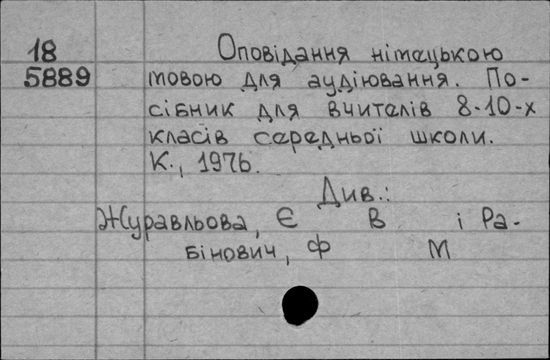 18
5889
Оповідання німецькою
мовою для аудіювання. По-
сібник для вчителів 8-10-х
класів середньої школи.
К., 1976.
Див.:
Журавльова, Є В і Ра-
бінович, Ф М